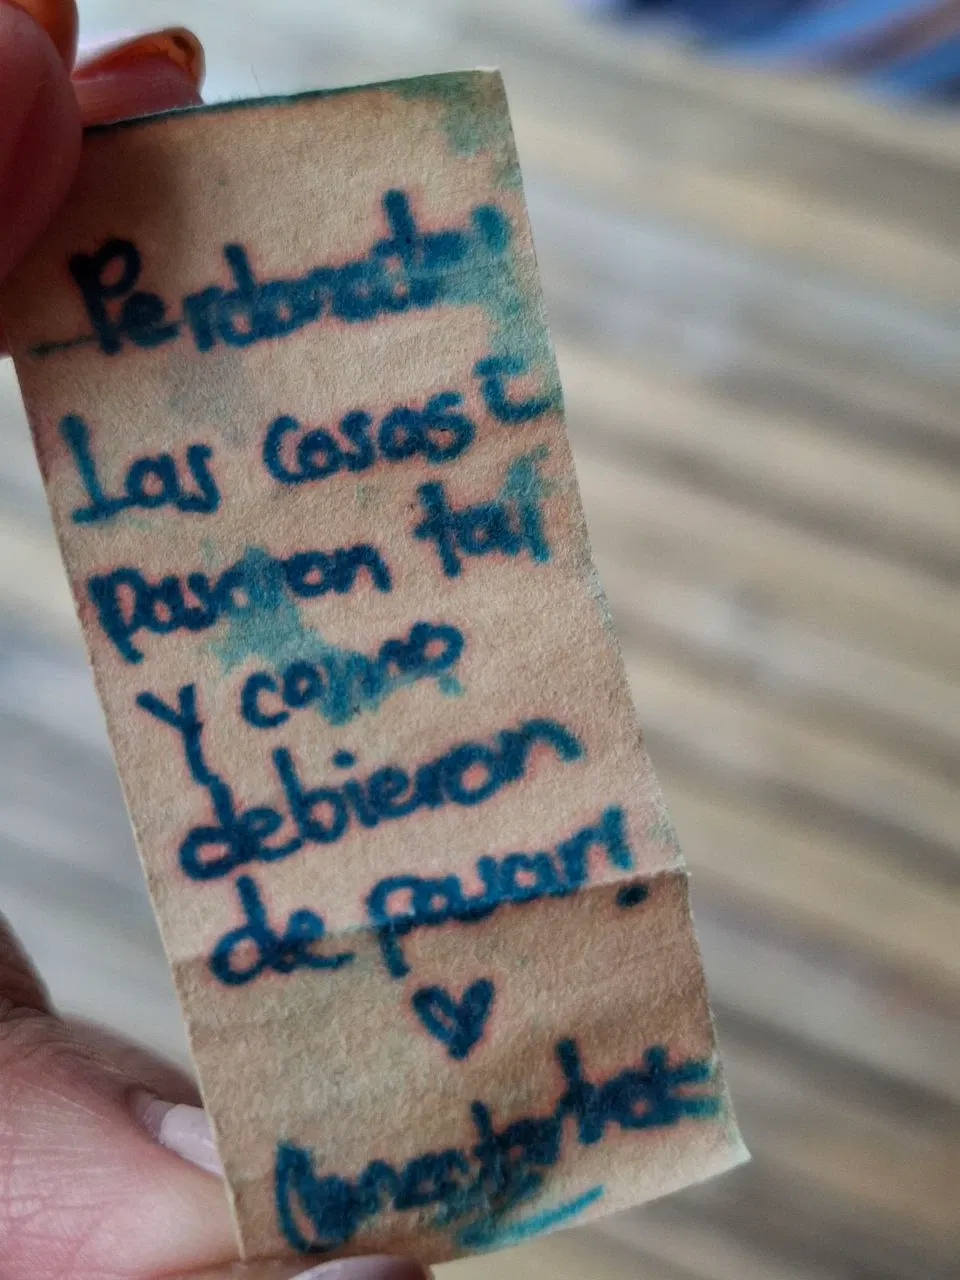 Perdonate!
Las cosas
pasaron tal
y como
debieron
de pasar!